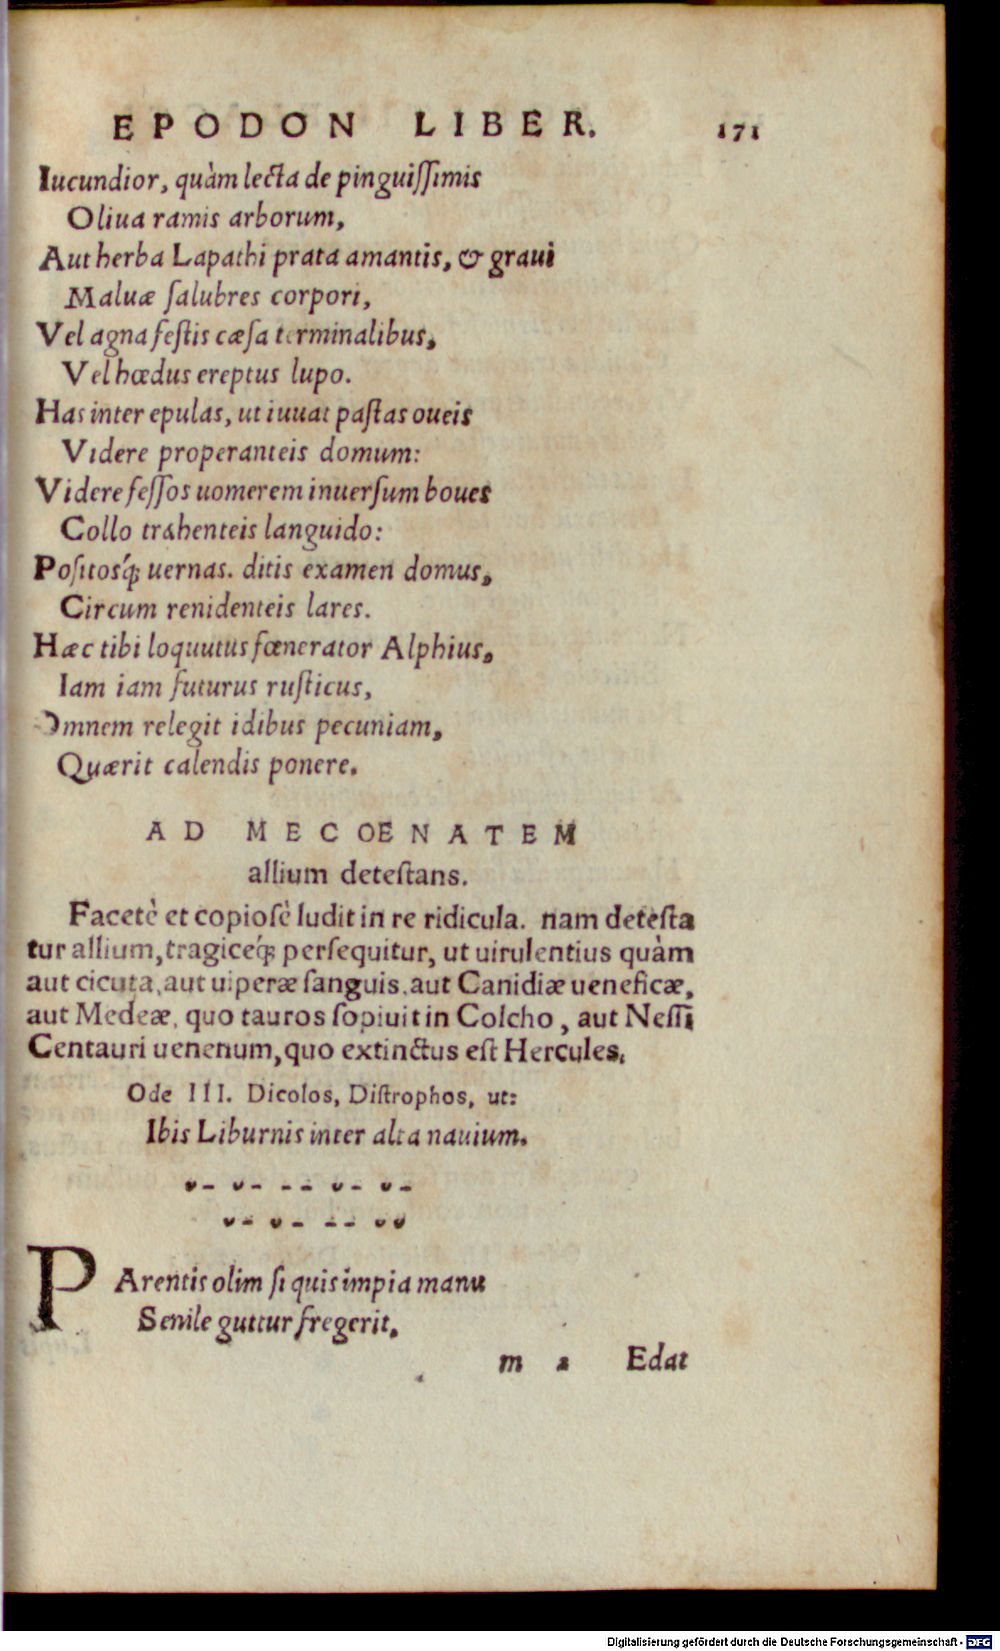 EPODON LIBER. 171
Iucundior, quàm lecta de pinguiſſimis
Oliua ramis arborum,
Aut herba Lapathi prata amantis, & graui
Maluæ ſalubres corpori,
Vel agna feſtis cæſa terminalibus,
Vel hœdus ereptus lupo.
Has inter epulas, ut iuuat paſtas oueis
Videre properanteis domum:
Videre feſſos uomerem inuerſum boues
Collo trahenteis languido:
Poſitosq́; uernas. ditis examen domus,
Circum renidenteis lares.
Hæc tibi loquutus fœnerator Alphius,
Iam iam futurus ruſticus,
Omnem relegit idibus pecuniam,
Quærit calendis ponere.
AD MECOENATEM
allium deteſtans.
Facetè et copioſè ludit in re ridicula. nam deteſta
tur allium, tragiceq́; perſequitur, ut uirulentius quàm
aut cicuta, aut uiperæ ſanguis, aut Canidiæ ueneficæ,
aut Medeæ, quo tauros ſopiuit in Colcho, aut Neſſi
Centauri uenenum, quo extinctus eſt Hercules.
Ode III. Dicolos, Diſtrophos, ut:
Ibis Liburnis inter alta nauium.
ᴗ– ᴗ– –– ᴗ– ᴗ–
ᴗ– ᴗ– –– ᴗᴗ
PArentis olim ſi quis impia manu
Senile guttur fregerit,
m 2 Edat
Digitalisierung gefördert durch die Deutsche Forschungsgemeinschaft - DFG